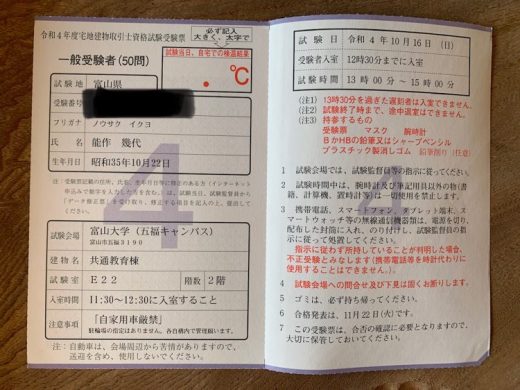 令和4年度宅地建物取引士資格試験受験票
必ず記入
大きく、太字で
一般受験者(50問)
試験当日、自宅での検温結果
. ℃
試験地 富山県
受験番号
フリガナ ノウサク イクヨ
氏名 能作 幾代
生年月日 昭和35年10月22日
(注)受験票記載の住所、氏名、生年月日等に修正のある方(インターネット
申込みで漢字を入力した方を含む。)は、試験当日、試験監督員から
「データ修正票」を受け取り、修正する項目を記入の上、提出して
ください。
4
試験会場 富山大学(五福キャンパス)
富山市五福3190
建物名 共通教育棟
試験室 E22 階数 2階
入室時間 11:30~12:30に入室すること
注意事項 「自家用車厳禁」
駐輪場の指定はありません。各自構内で管理願います。
注:自動車は、会場周辺から苦情がありますので、
送迎を含め、使用しないでください。
試験日 令和4年10月16日(日)
受験者入室 12時30分までに入室
試験時間 13時00分~15時00分
(注1) 13時30分を過ぎた遅刻者は入室できません。
(注2) 試験終了時まで、途中退室はできません。
(注3) 持参するもの
受験票 マスク 腕時計
BかHBの鉛筆又はシャープペンシル
プラスチック製消しゴム 鉛筆削り(任意)
1 試験会場では、試験監督員の指示に従ってください。
2 試験時間中は、腕時計及び筆記用具以外の物(書
籍、計算機、置時計等)は一切使用を禁止します。
3 携帯電話、スマートフォン、タブレット端末、ス
マートウォッチ等の無線通信機器類は、電源を切り、
配布した封筒に入れ、のり付けし、試験監督員の指
示に従って処置してください。
指示に従わず所持していることが判明した場合、
不正受験とみなします(携帯電話等を時計代わりに
使用することはできません。)。
4 試験会場への問合せ及び下見は固くお断りします。
5 ゴミは、必ず持ち帰ってください。
6 合格発表は、11月22日(火)です。
7 この受験票は、合否の確認に必要となりますので、
大切に保管しておいてください。
4